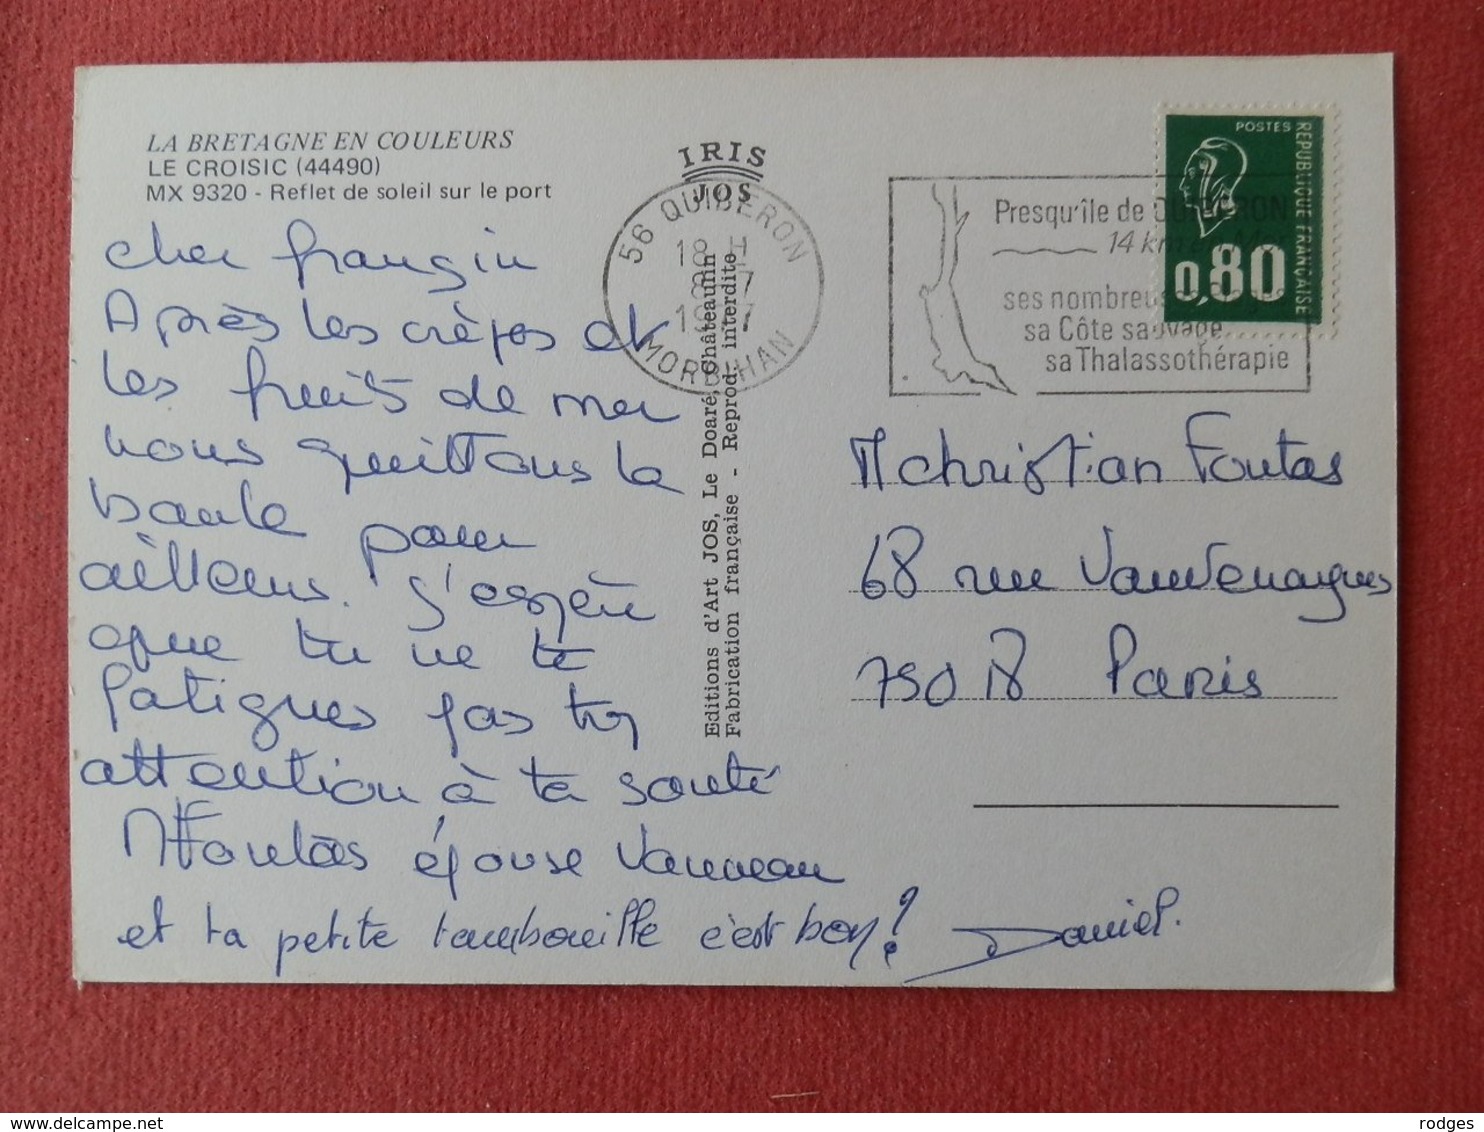 LA BRETAGNE EN COULEURS
LE CROISIC (44490)
MX 9320 - Reflet de soleil sur le port
cher frangin
Après les crèpes et
les fruits de mer
nous quittons la
baule pour
ailleurs. J'espère
que tu ne te
fatigues pas trop
attention à ta santé
MFoutas épouse Vanneau
et ta petite tambouille c'est bon? Daniel.
IRIS
JOS
56 QUIBERON
18 H
8-7
MORBIHAN
Editions d'Art JOS, Le Doaré, Châteaulin
Fabrication française - Reprod. interdite
Presqu'île de QUIBERON
14 km
ses nombreuses
sa Côte sauvage
sa Thalassothérapie
POSTES
REPUBLIQUE FRANÇAISE
0,80
M christian Foutas
68 rue Vauvenargues
75018 Paris
rodges